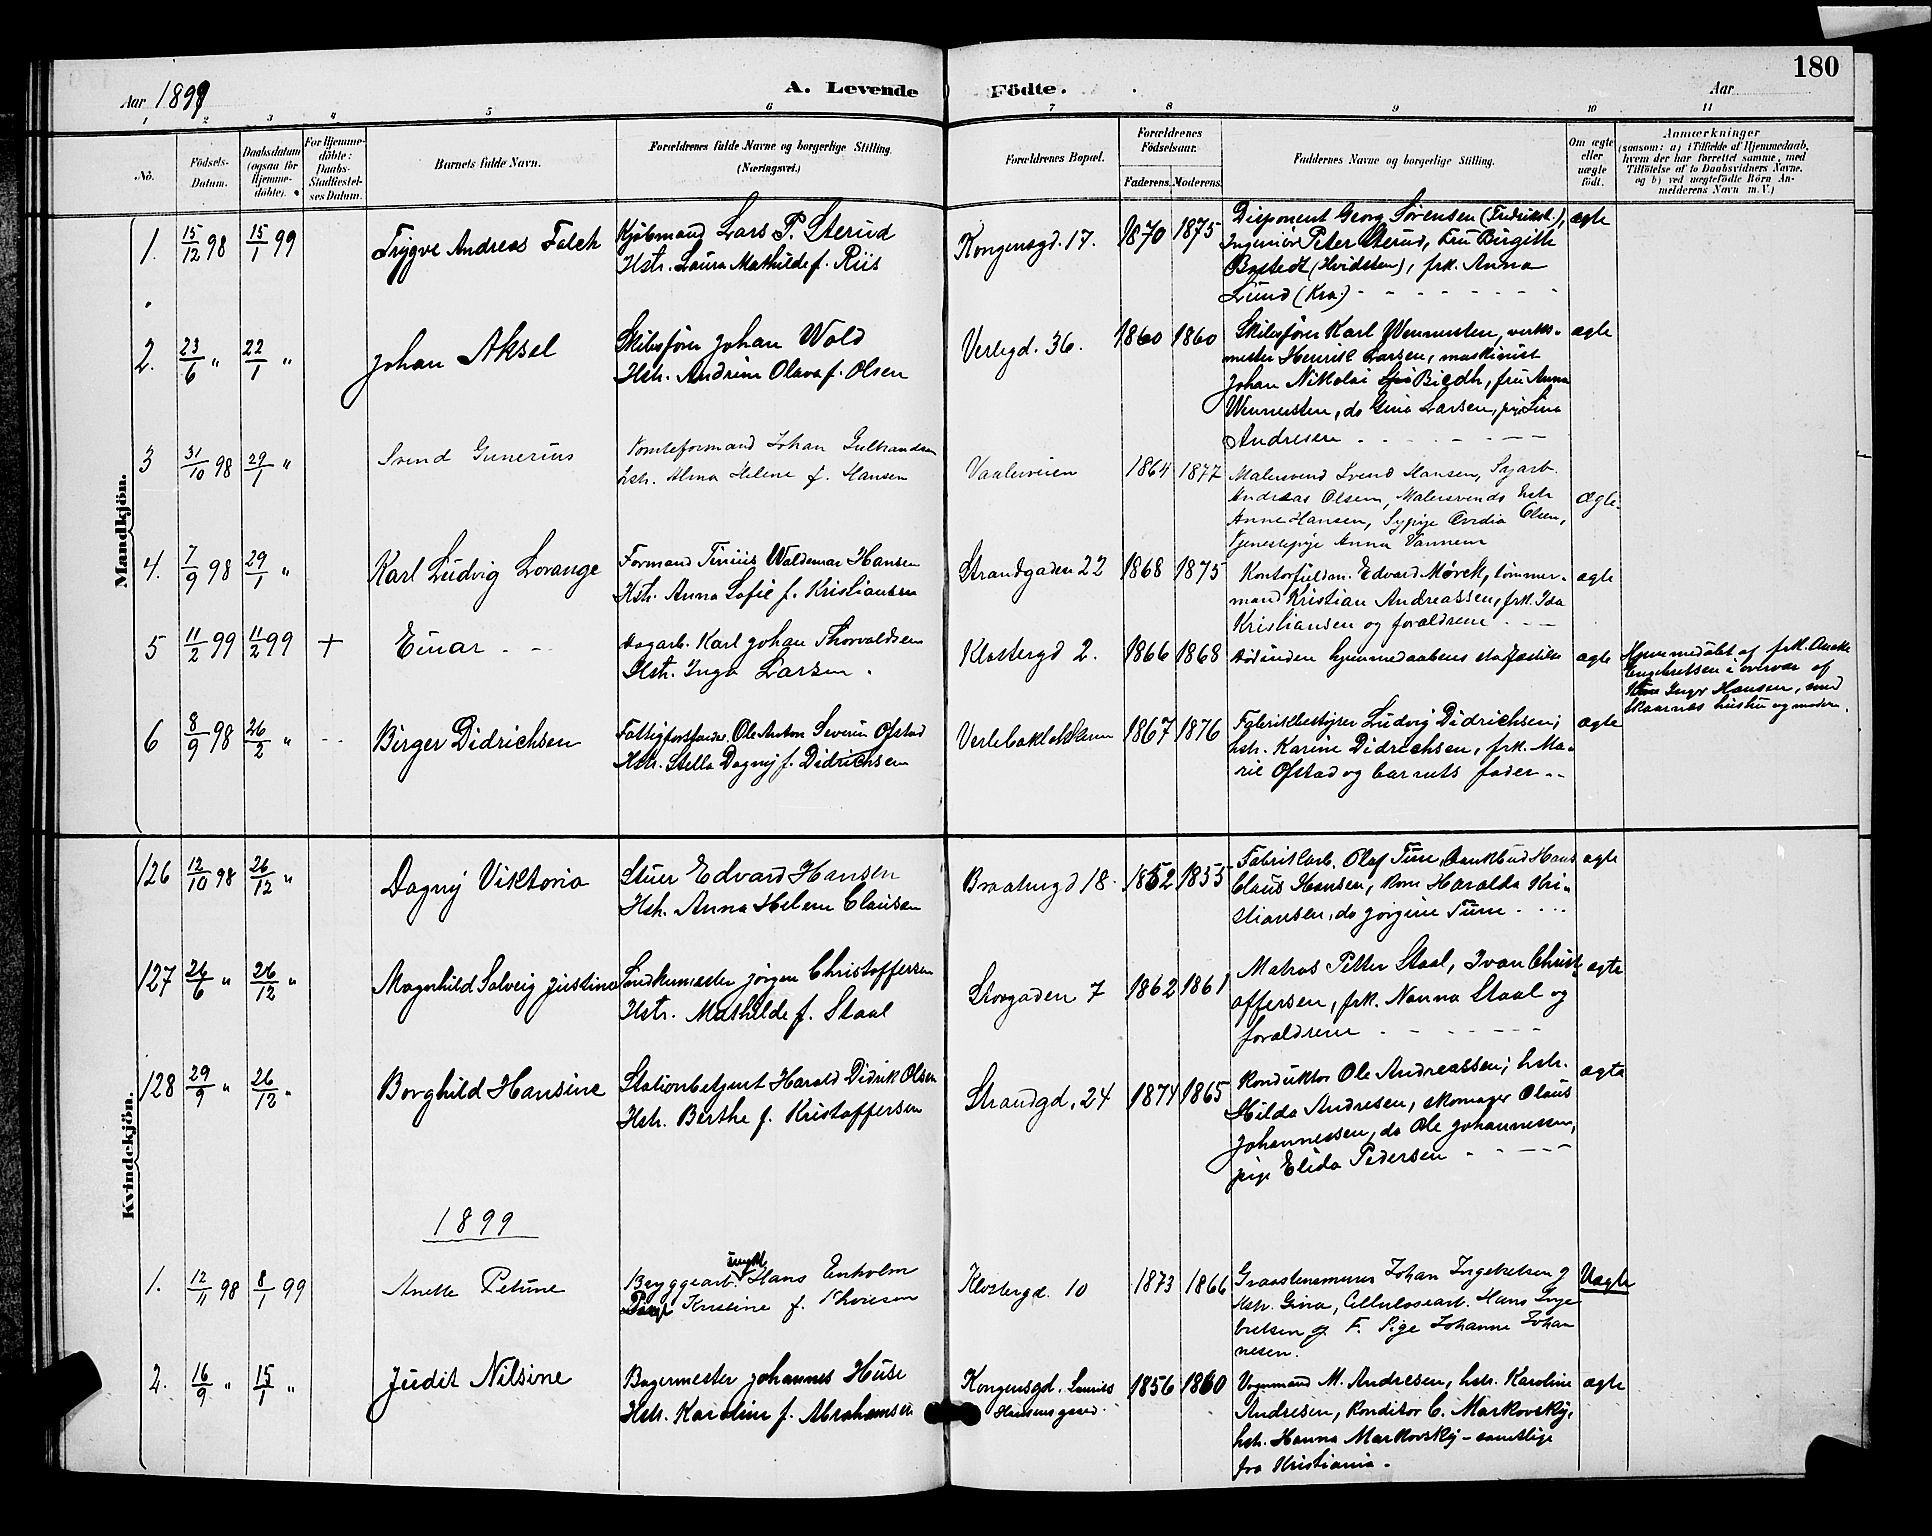 180
Aar 1899
A. Levende Födte.
Aar
1 2 3 4 5 6 7 8 9 10 11
No.
Födsels-Datum.
Daabsdatum (ogsaa for Hjemmedöbte).
For Hjemmedöbte: Daabs-Stadfæstelses Datum.
Barnets fulde Navn.
Forældrenes fulde Navne og borgerlige Stilling. (Næringsvei.)
Forældrenes Bopæl.
Forældrenes Födselsaar.
Faderens. Moderens.
Faddernes Navne og borgerlige Stilling.
Om ægte eller uægte födt.
Anmærkninger
(saasom: a) i Tilfælde af Hjemmedaab,
hvem der har forrettet samme, med
Tilföielse af to Daabsvidners Navne.
og b) ved uægtefödte Börn Anmelderens Navn m. V.)
Mandkjön.
1. 15/12 98 15/1 99 Trygve Andreas Falch
Kjøbmand Lars P. Sterud
Hstr. Laura Mathilde f. Riis
Kongensgd. 17. 1870 1875
Disponent Georg Sørensen (Fredrikst.),
Ingeniør Peter Sterud, Fru Birgitte
Bostedt (Hvidsten), frk. Anna
Lund (Kra.)
ægte
2. 23/6 " 22/1 " Johan Aksel
Skibsfører Johan Wold
Hstr. Andrine Olava f. Olsen
Verlegd. 36. 1860 1860
Skibsfører Karl Wennersten, verks-
mester Henrik Larsen, maskinist
Johan Nikolai Biedh, fru Anna
Wennersten, do Gina Larsen, pige Lina
Andresen
ægte
3 31/10 98 29/1 " Svend Gunerius
Tomteformand Johan Gulbrandsen
hstr. Alma Helene f. Hansen
Vaalerveien 1864 1877
Malersvend Svend Hansen, Sagarb.
Andreas Olsen, Malersvends hstr
Anne Hansen, Sypige Ovidia Olsen,
Tjenestepige Anna Vannem
Ægte.
4. 7/9 98 29/1 " Karl Ludvig Lorange
Formand Tinius Waldemar Hansen
Hstr. Anna Sofie f. Kristiansen
Strandgaden 22 1868 1875
Kontorfuldm. Edvard Mørck, tømmer-
mand Kristian Andreassen, frk. Ida
Kristiansen og forældrene
ægte
5 11/2 99 11/2 99 + Einar
Dagarb. Karl Johan Thorvaldsen
Hstr. Inga Larsen.
Klostergd 2. 1866 1868
død inden hjemmedaabens stadfæstelse
ægte
Hjemmedøbt af frk. Anette
Engebretsen i overvær af
Inger Hansen, smed
Skaarnæs hustru og moderen.
6 8/9 98 26/2 " Birger Didrichsen
Fattigforstander Ole Anton Severin Ofstad
Hstr. Stella Dagny f. Didrichsen
Verlebakløkken 1867 1876
Fabrikbestyrer Ludvig Didrichsen,
hstr. Karine Didrichsen, frk. Ma-
rie Ofstad og barnets fader
ægte
Kvindekjön.
126 12/10 98 26/12 " Dagny Viktoria
Stuer Edvard Hansen
Hstr. Anna Helene Clausen
Braatengd 18. 1852 1855
Fabrikarb. Olaf Tune, Bankbud Hans
Claus Hansen, Kone Haralda Kri-
stiansen, do Jørgine Tune
ægte
127 26/6 " 26/12 " Magnhild Solveig Justina
Snedkermester Jørgen Christoffersen
Hstr. Mathilde f. Staal
Storgaden 7 1862 1861
Matros Petter Staal, Ivan Christ-
offersen, frk. Nanna Staal og
forældrene
ægte
128 29/9 " 26/12 " Borghild Hansine
Stationbetjent Harald Didrik Olsen
Hstr. Berthe f. Kristoffersen
Strandgd. 24 1874 1865
Konduktør Ole Andreassen, hstr.
Hilda Andresen, skomager Olaus
Johannessen, do Ole Johannessen,
pige Elida Pedersen
ægte
1899
1. 12/11 98 8/1 99 Anette Petrine
Bryggearb. ungk. Hans Enholm
Pige Kristine f. Thoresen
Klostergd. 10 1873 1866
Graastensmurer Johan Ingebretsen og
Hstr. Gina, Cellulosearb. Hans Inge-
bretsen og F. Pige Johanne Johan
nesen.
Uægte
2. 16/9 " 15/1 " Judit Nilsine
Bagermester Johannes Huse
Hstr. Karoline f. Abrahamsen
Kongensgd. Laurits
Hansens gaard. 1856 1860
Vognmand M. Andresen, hstr. Karoline
Andresen, Konditor C. Markovsky,
hstr. Hanna Markovsky - samtlige
fra Kristiania.
ægte